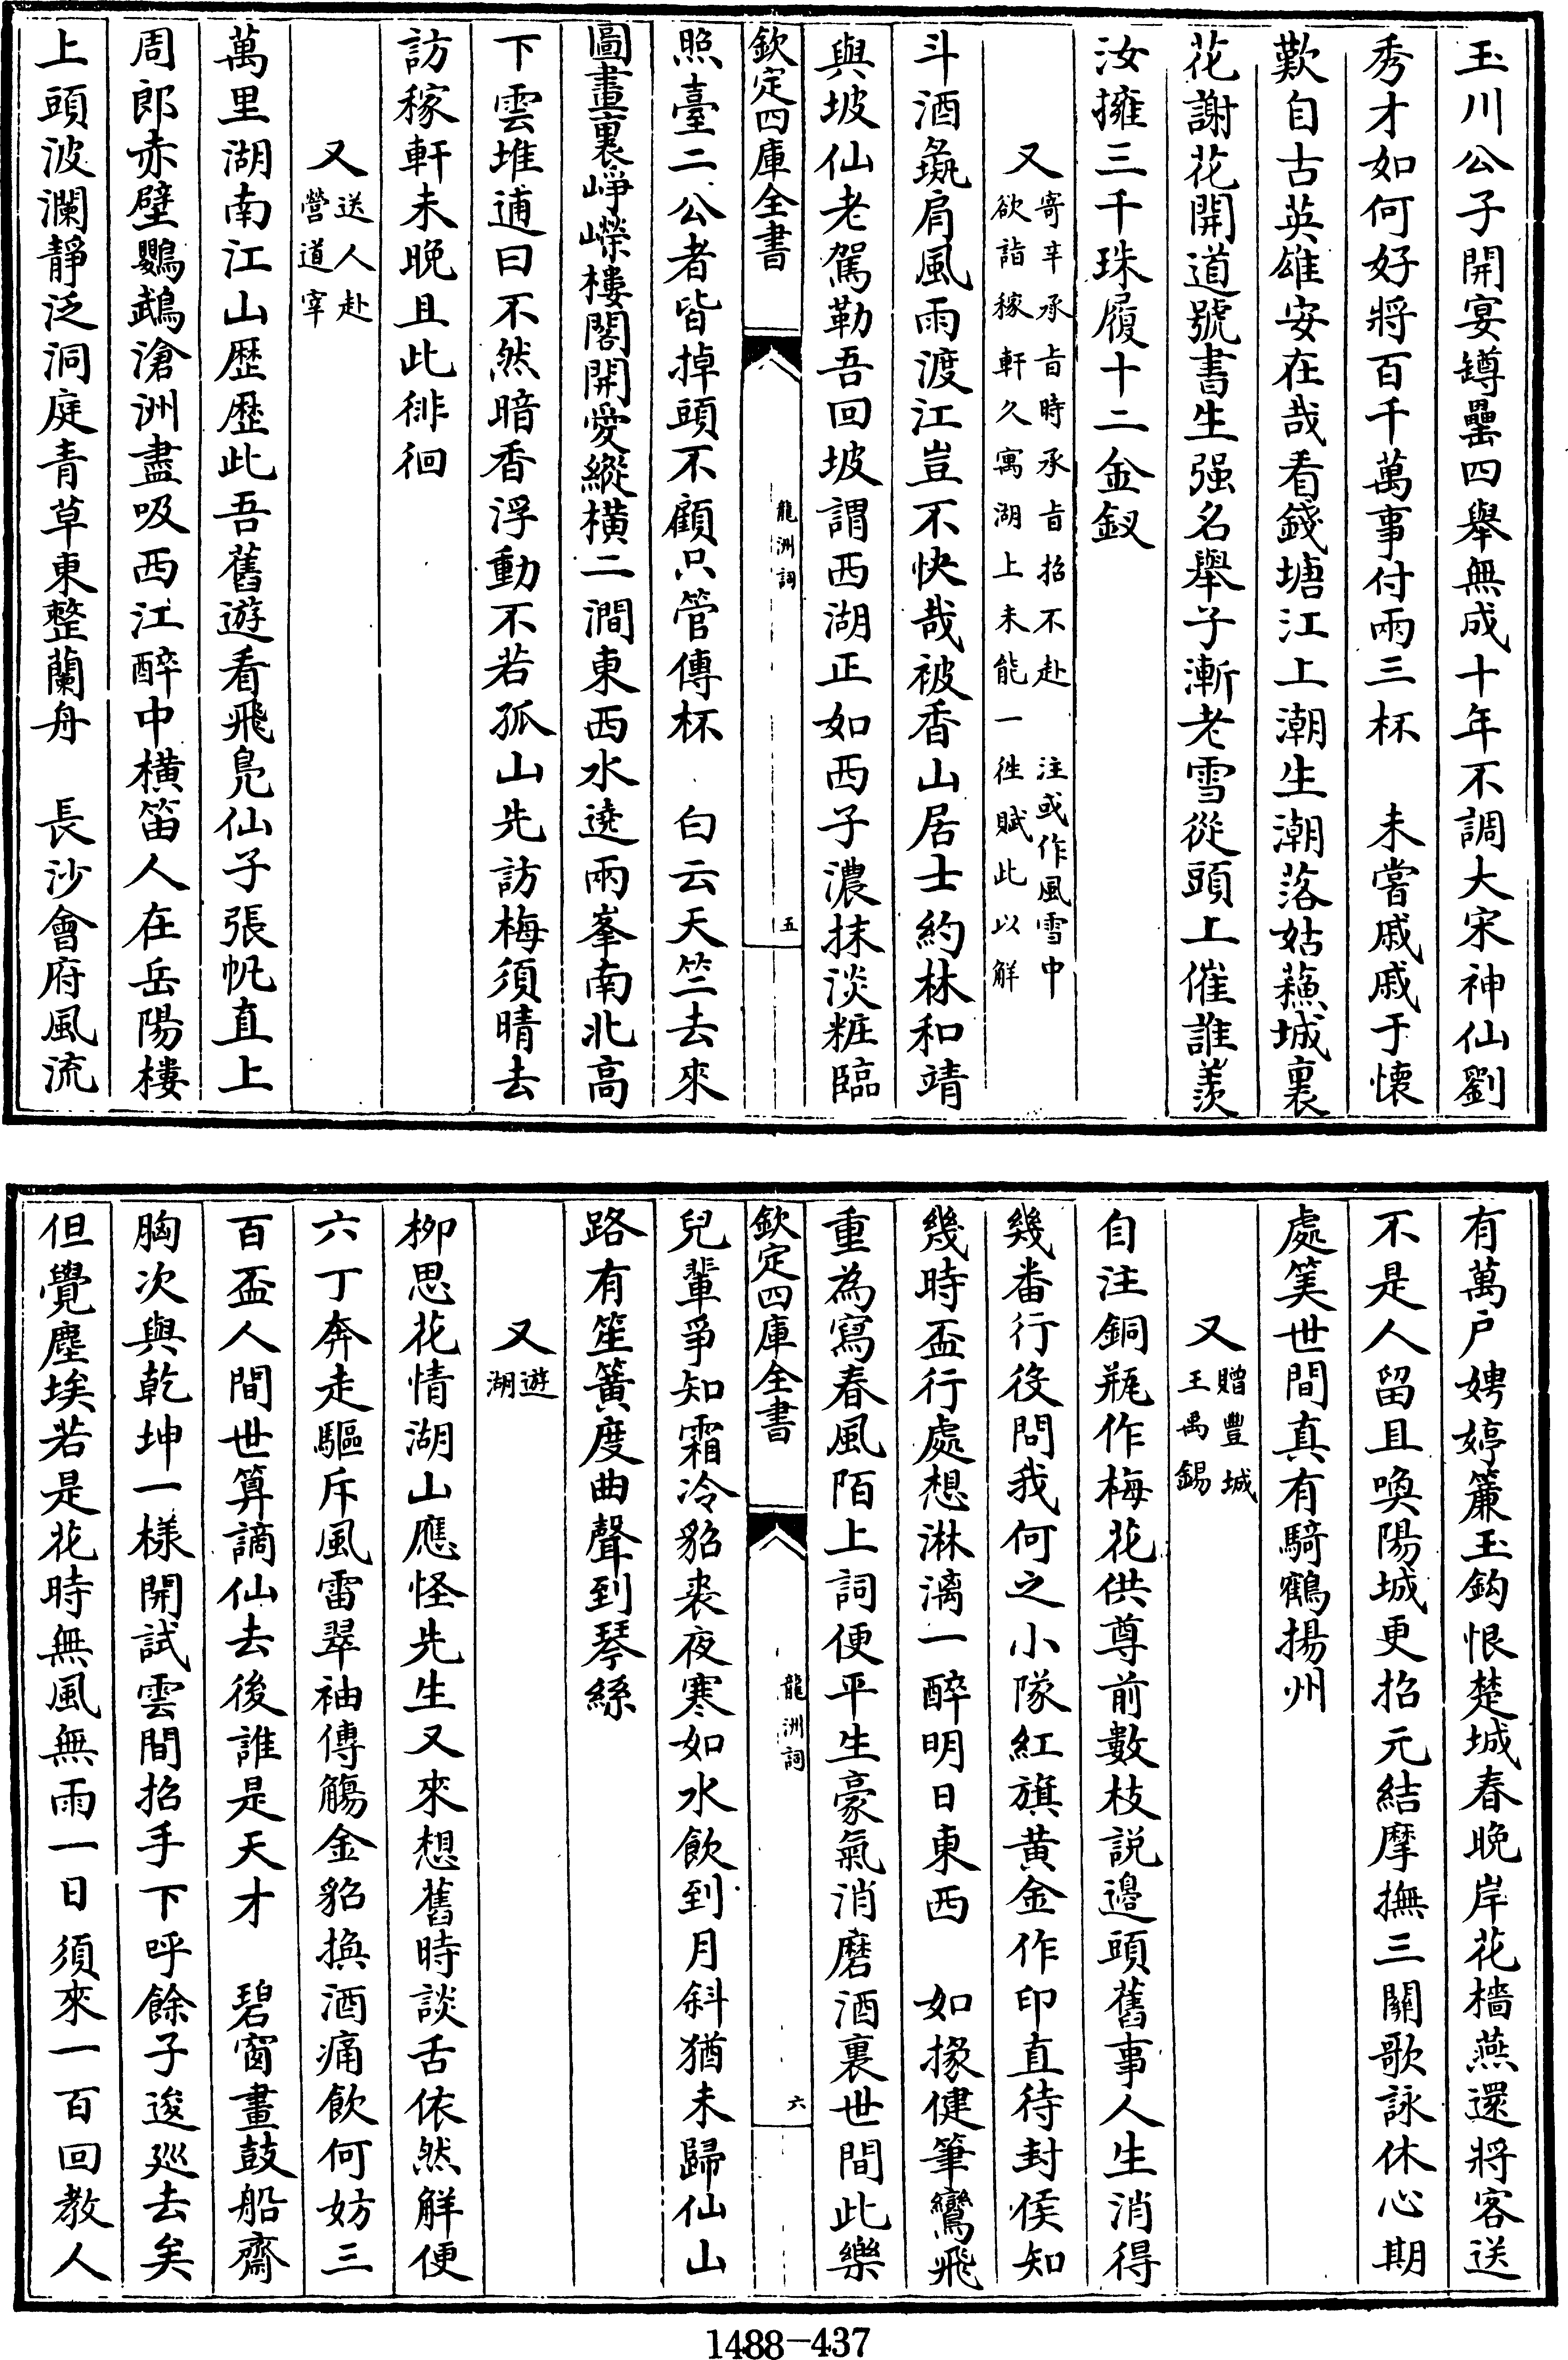 玉川公子開宴鐏罍四舉無成十年不調大宋神仙劉
秀才如何好將百千萬事付兩三杯　未嘗戚戚于懷
歎自古英雄安在哉看錢塘江上潮生潮落姑蘓城裏
花謝花開道號書生强名舉子漸老雪從頭上催誰羨
汝擁三千珠履十二金釵
又寄辛承旨時承旨招不赴　注或作風雪中
欲詣稼軒久寓湖上未能一徃賦此以解
斗酒彘肩風雨渡江豈不快哉被香山居士約林和靖
與坡仙老駕勒吾回坡謂西湖正如西子濃抹淡粧臨
欽定四庫全書
龍洲詞
五
照臺二公者皆掉頭不顧只管傳杯　白云天竺去來
圖畫裏崢嶸樓閣開愛縱橫二澗東西水遶兩峯南北高
下雲堆逋曰不然暗香浮動不若孤山先訪梅須晴去
訪稼軒未晚且此徘徊
又送人赴
營道宰
萬里湖南江山歷歷此吾舊遊看飛鳧仙子張帆直上
周郎赤壁鸚鵡滄洲盡吸西江醉中橫笛人在岳陽樓
上頭波瀾靜泛洞庭青草東整蘭舟　長沙會府風流
有萬户娉婷簾玉鈎恨楚城春晚岸花檣燕還將客送
不是人留且喚陽城更招元結摩撫三關歌詠休心期
處笑世間真有騎鶴揚州
又贈豐城
王禹錫
自注銅瓶作梅花供尊前數枝説邊頭舊事人生消得
幾畨行役問我何之小隊紅旗黄金作印直待封侯知
幾時盃行處想淋漓一醉明日東西　如掾健筆鸞飛
重為寫春風陌上詞便平生豪氣消磨酒裏世間此樂
欽定四庫全書
龍洲詞
六
兒輩爭知霜冷貂裘夜寒如水飲到月斜猶未歸仙山
路有笙簧度曲聲到琴絲
又遊
湖
柳思花情湖山應怪先生又來想舊時談舌依然解便
六丁奔走驅斥風雷翠袖傳觴金貂換酒痛飲何妨三
百盃人間世算謫仙去後誰是天才　碧窗畫鼓船齋
胸次與乾坤一様開試雲間招手下呼餘子逡廵去矣
但覺塵埃若是花時無風無雨一日須來一百回教人
1488-437